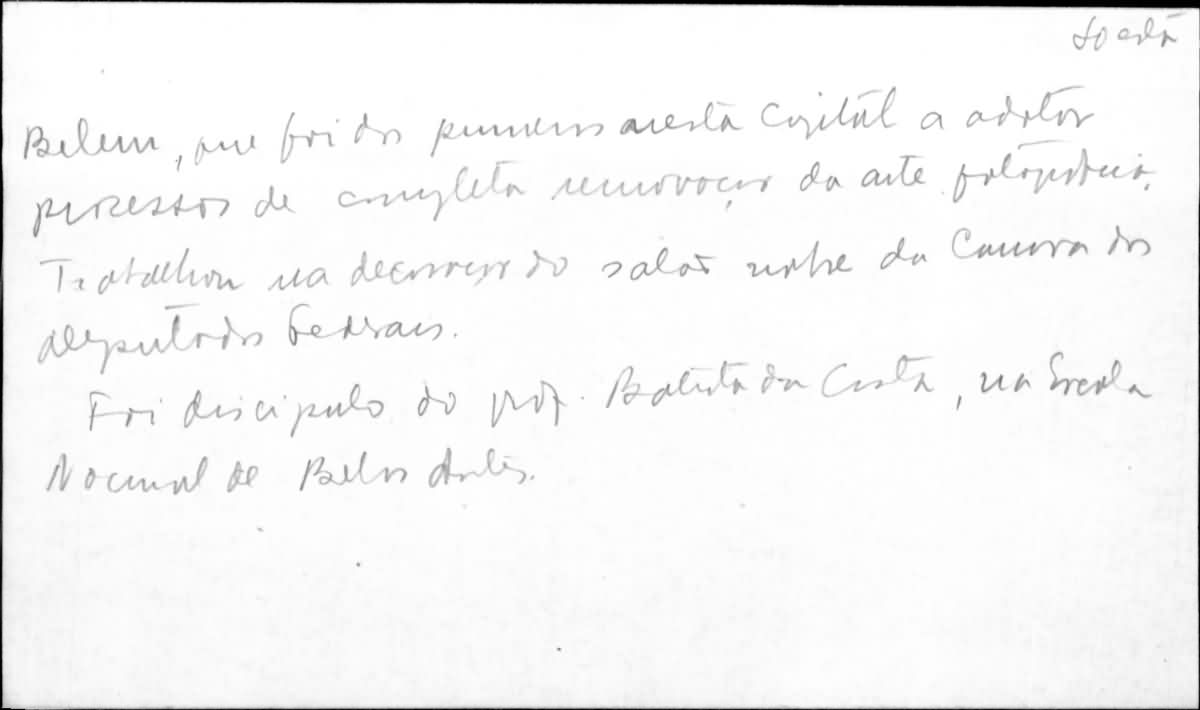 Belem, que foi dos primeiros nesta Capital a adotar
processos de completa renovaçao da arte fotografica.
Trabalhou na decoraçao do salão nobre da Camara dos
deputados Federais.
Foi discipulo do prof. Batista da Costa, na Escola
Nacional de Belas Artes.